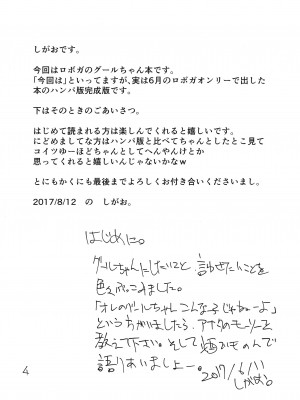 しがおです。
今回はロボガのグールちゃん本です。
「今回は」といってますが、実は6月のロボガオンリーで出した
本のハンパ版完成版です。
下はそのときのごあいさつ。
はじめて読まれる方は楽しんでくれると嬉しいです。
にどめましてな方はハンパ版と比べてちゃんとしたとこ見て
コイツゆーほどちゃんとしてへんやんけとか
思ってくれると嬉しいんじゃないかなw
とにもかくにも最後までよろしくお付き合いくださいまし。
2017/8/12 の しがお。
はじめに。
グールちゃんにしたいこと、言わせたいことを
色々ぶっこみました。
「オレのグールちゃんこんな子じゃねーよ」
というちがいましたら、アナタのモーソーを
教えて下さい。そして酒のものんで
語りあいましょー。2017/6/11
しがお。
4